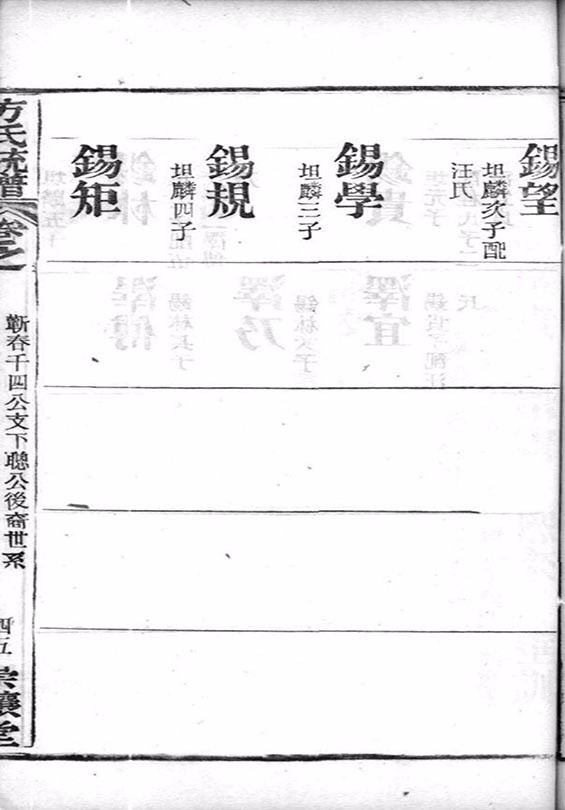 錫望
坦麟次子配
汪氏
錫學
坦麟三子
錫規
坦麟四子
錫矩
方氏統譜
卷之
蘄春千四公支下聰公後裔世系
四五